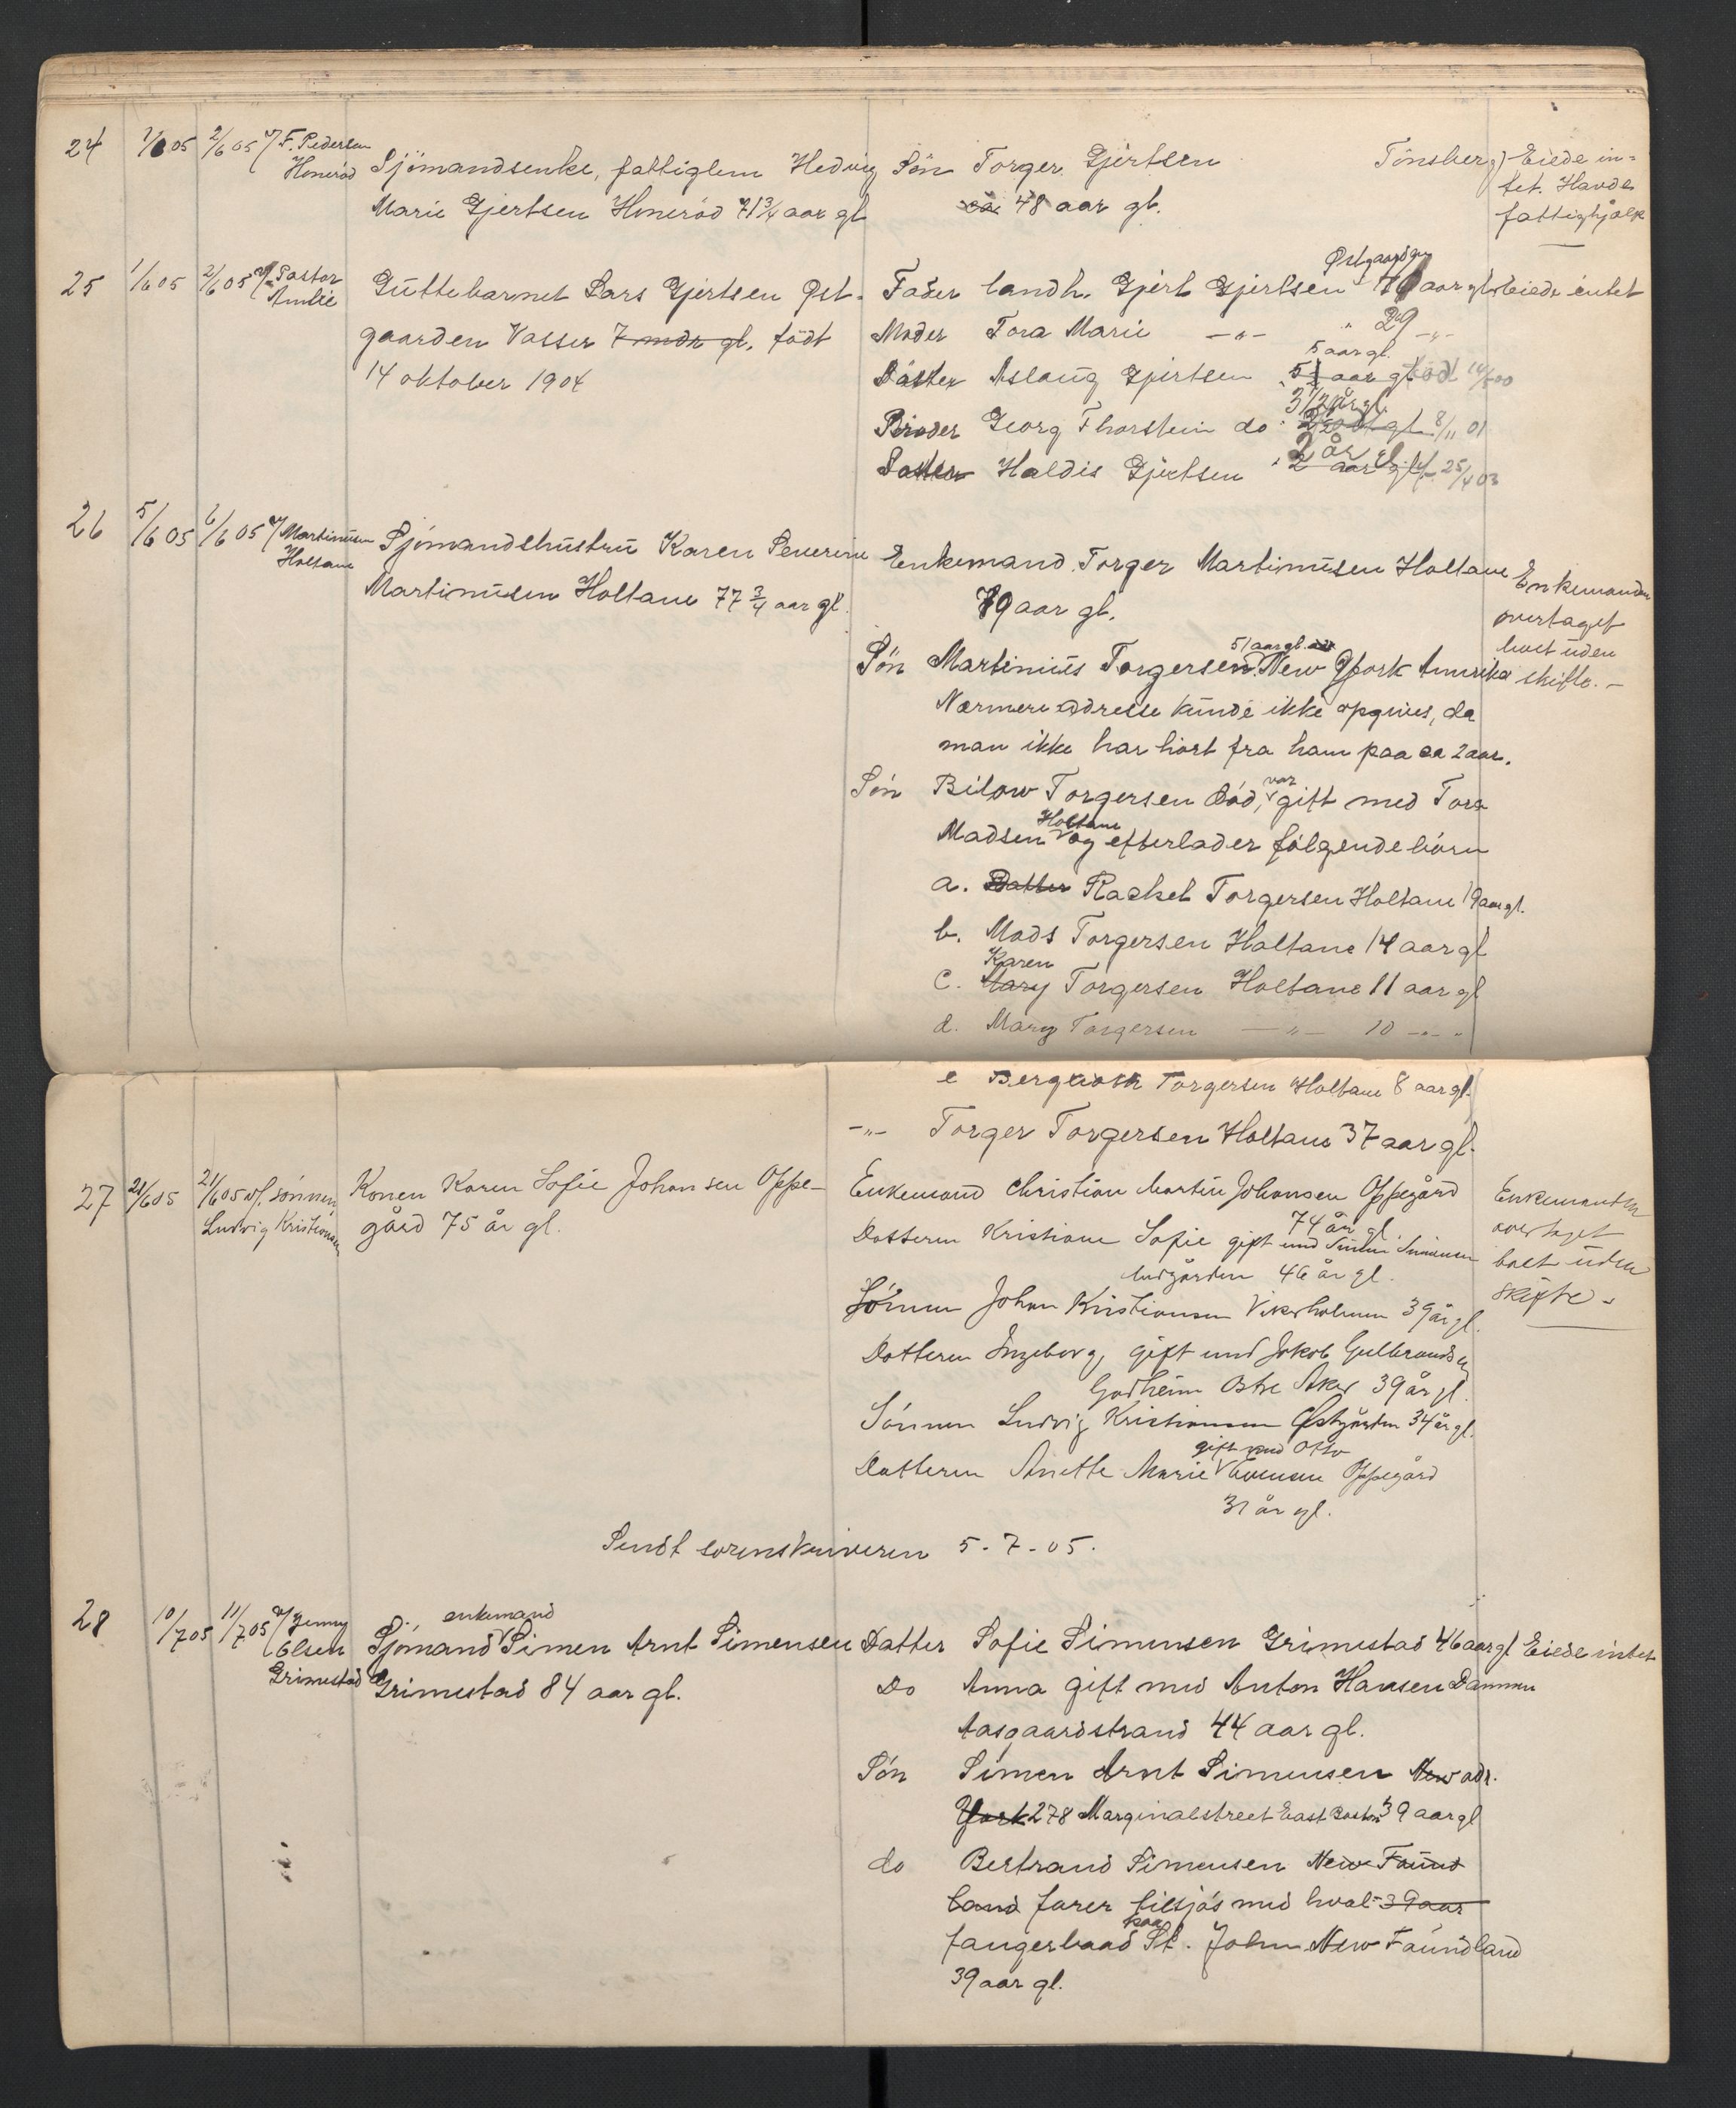 24 1/6 05 2/6 05 v/ F. Pedersen
Honerød
Sjömandsenke, fattiglem Hedvig
Marie Gjertsen Honerød 71 3/4 aar gl
Sön Torger Gjertsen Tönsberg
48 aar gl.
Eiede in-
tet. Havde
fattighjælp
25 1/6 05 2/6 05 v/ Pastor
Amlie
Guttebarnet Lars Gjertsen Øst-
gaarden Vasser 7 mdr gl. födt
14 oktober 1904
Østgaarden
Fader landh. Gjert Gjertsen aar gl. eiede intet
Moder Tora Marie -"- " 29 -"-
5 aar gl.
Datter Aslaug Gjertsen 5 aar gl. född
3 1/2 år gl.
Broder Georg Thorstein do 8/11 01
2 år gl
Datter Haldis Gjertsen 2 aar gl f. 25/4 03
26 5/6 05 6/6 05 v/ Martinusen
Holtane
Sjömandshustru Karen Severine
Martinusen Holtane 77 3/4 aar gl.
Enkemand Torger Martinusen Holtane
79 aar gl.
Enkemanden
overtaget
boet uden
skifte. –
51 aar gl.
Sön Martinius Torgersen New York Amerika
Nærmere adresse kunde ikke opgives, da
man ikke har hört fra ham paa ca 2 aar.
Sön Bilow Torgersen död, var gift med Tora
Madsen Holtane og efterlader fölgende börn
a. Datter Rachel Torgersen Holtane 19 aar gl.
b. Mads Torgersen Holtane 14 aar gl
Karen
c. Mary Torgersen Holtane 11 aar gl
d. Mary Torgersen -"- 10 -"-
e Bergliot Torgersen Holtane 8 aar gl.
-"- Torger Torgersen Holtane 37 aar gl.
27 21/6 05 21/6 05 v/ sönnen
Ludvig Kristiansen
Konen Karen Sofie Johansen Oppe-
gård 75 år gl.
Enkemand Christian Martin Johansen Oppegård
74 år gl.
Enkemanden
overtaget
boet uden
skifte –
Datteren Kristiane Sofie gift med Simen Simensen
Midgården 46 år gl.
Sönnen Johan Kristiansen Vikerholmen 39 år gl.
Datteren Ingeborg, gift med Jakob Gulbrandsen
Godheim Østre Aker 39 år gl.
Sönnen Ludvig Kristiansen Østgården 34 år gl.
gift med Otto
Datteren Anette Marie Evensen Oppegård
31 år gl.
Sendt sorenskriveren 5-7-05.
28 10/7 05 11/7 05 v/ Jenny
Olsen
Grimestad
enkemand
Sjömand Simen Arnt Simensen
Grimestad 84 aar gl.
Datter Sofie Simensen Grimestad 46 aar gl Eiede intet
Do Anna gift med Anton Hansen Dammen
Aasgaardstrand 44 aar gl.
Sön Simen Arnt Simensen New adr.
York 278 Marginalstreet East Boston 39 aar gl
do Bertrand Simensen New Found
land farer tilsjös med hval- 39 aar
fangerbaad paa St. John New Foundland
39 aar gl.